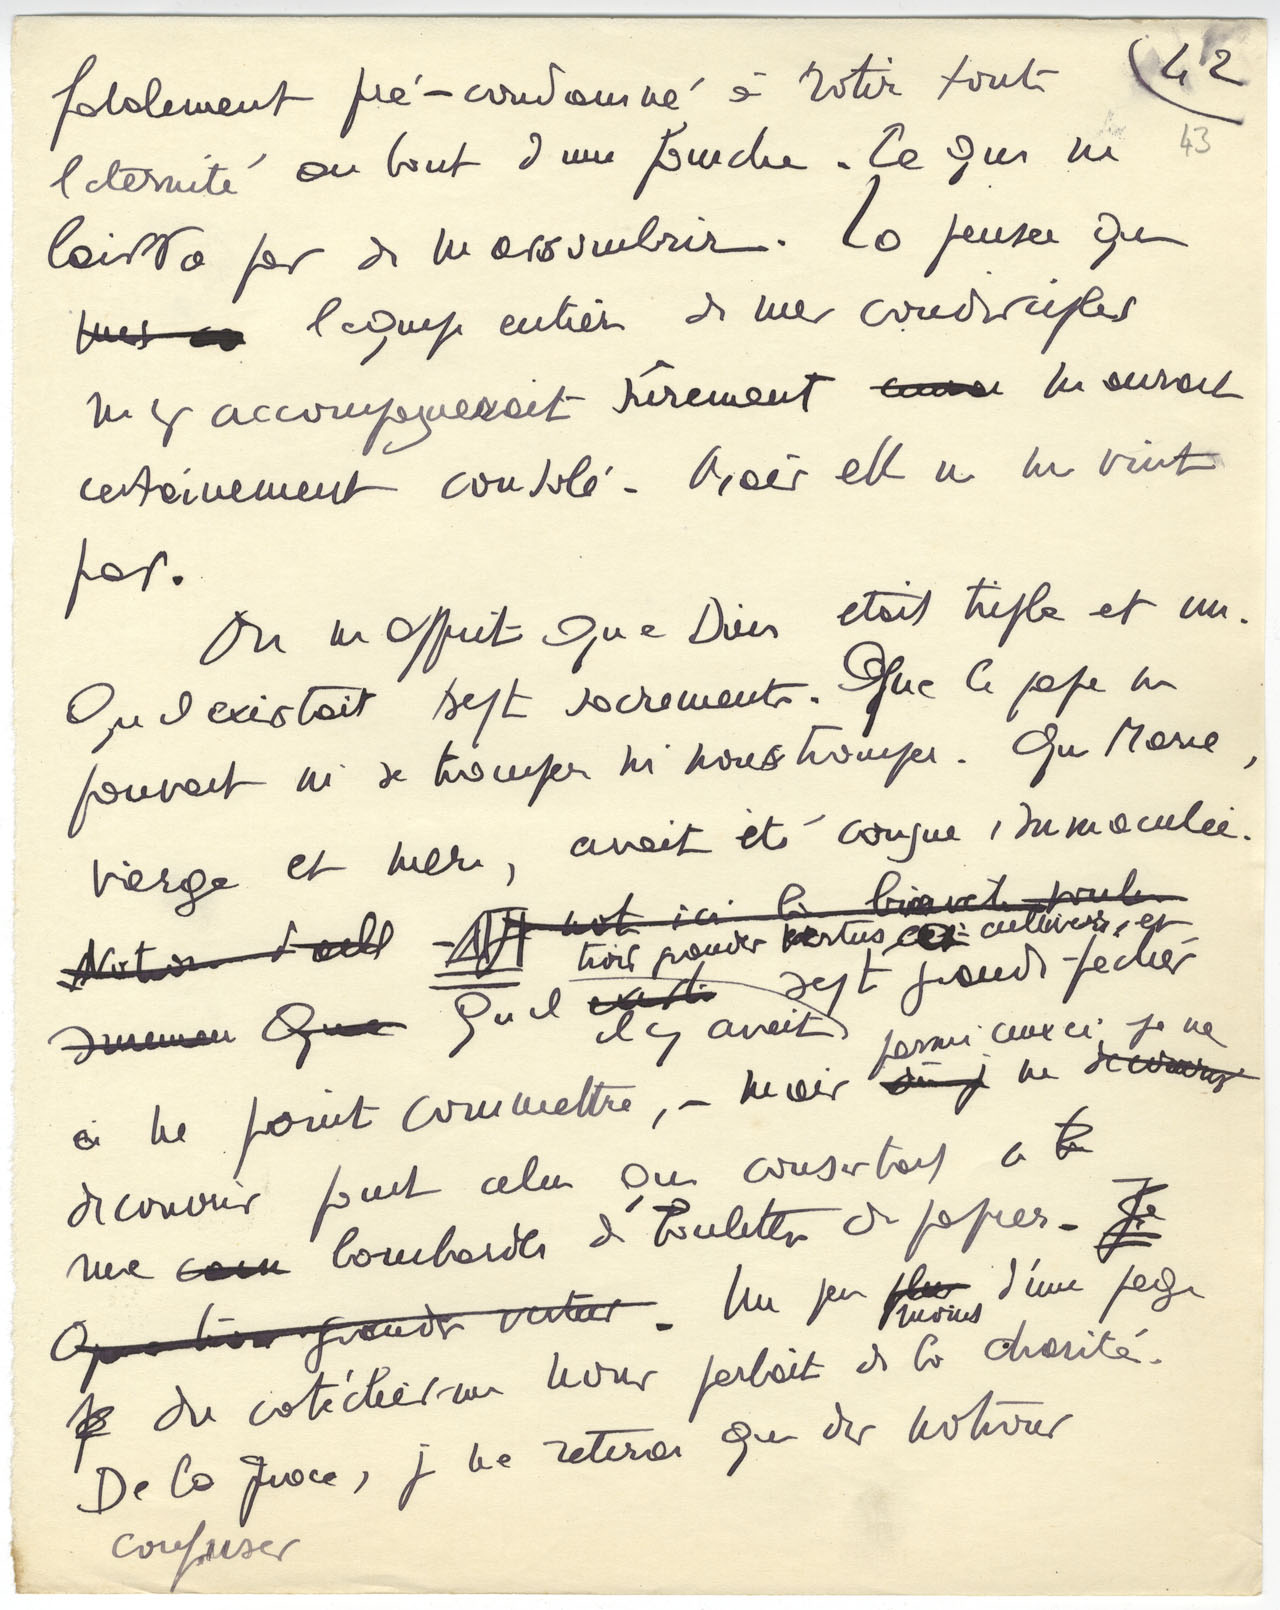 42
43
fatalement pré-condamné à rotir toute
l eternité au bout d une fourche. Ce qui ne
laissa pas de m assombrir. La pensée que
mes l equipe entière de mes condisciples
m y accompagnerait sûrement m aurait
certainement consolé. Mais elle ne me vint
pas.
On m apprit que Dieu etait triple et un.
Qu il existait sept sacrements. Que le pape ne
pouvait ni se tromper ni nous tromper. Que Marie,
vierge et mère, avait été conçue immaculée.
Notion d elle not ici le brevet seule
trois grandes vertus à cultiver, et
Que Qu il existe sept grands péchés
il y avait
parmi ceux ci, je ne
à ne point commettre, - mais ne decouvris
decouvrir point celui qui consistait à le
me bombarder de boulettes de papier. Je
Que trois grandes vertus. Un peu plus d'une page
moins
du catéchisme nous parlait de la charité.
De la grace, je ne retirai que des notions
confuses